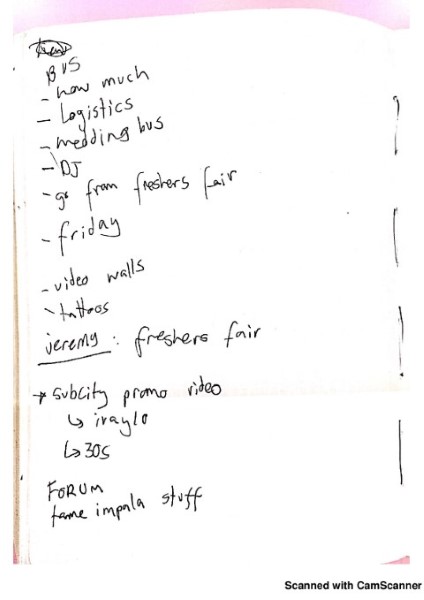 BUS
- how much
- Logistics
- medding bus
- DJ
- go from freshers fair
- friday
- video walls
- tattoos
jeremy: freshers fair
→ Subcity promo video
↳ iraylo
↳ 30s
FORUM
tame impala stuff
Scanned with CamScanner